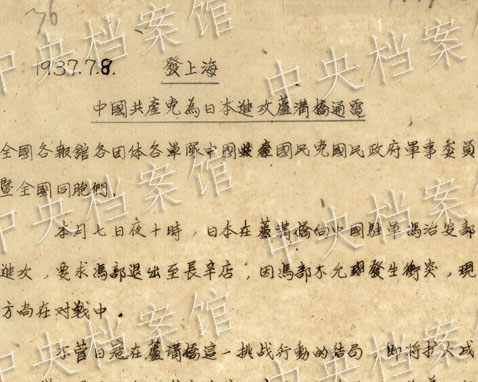 76
1937.7.8. 發上海
中國共產党為日本進攻蘆溝橋通電
全國各報館各团体各軍隊中国國民党國民政府軍事委員
暨全國同胞們.
本月七日夜十時，日本在蘆溝橋向中國駐軍馮治安部
進攻，要求馮部退出至長辛店，因馮部不允發生衝突，現
方尚在对战中.
不管日寇在蘆溝橋這一挑战行動的結局 即將扩大成
中央档案馆
中央档案馆
中央档案馆
中央档案馆